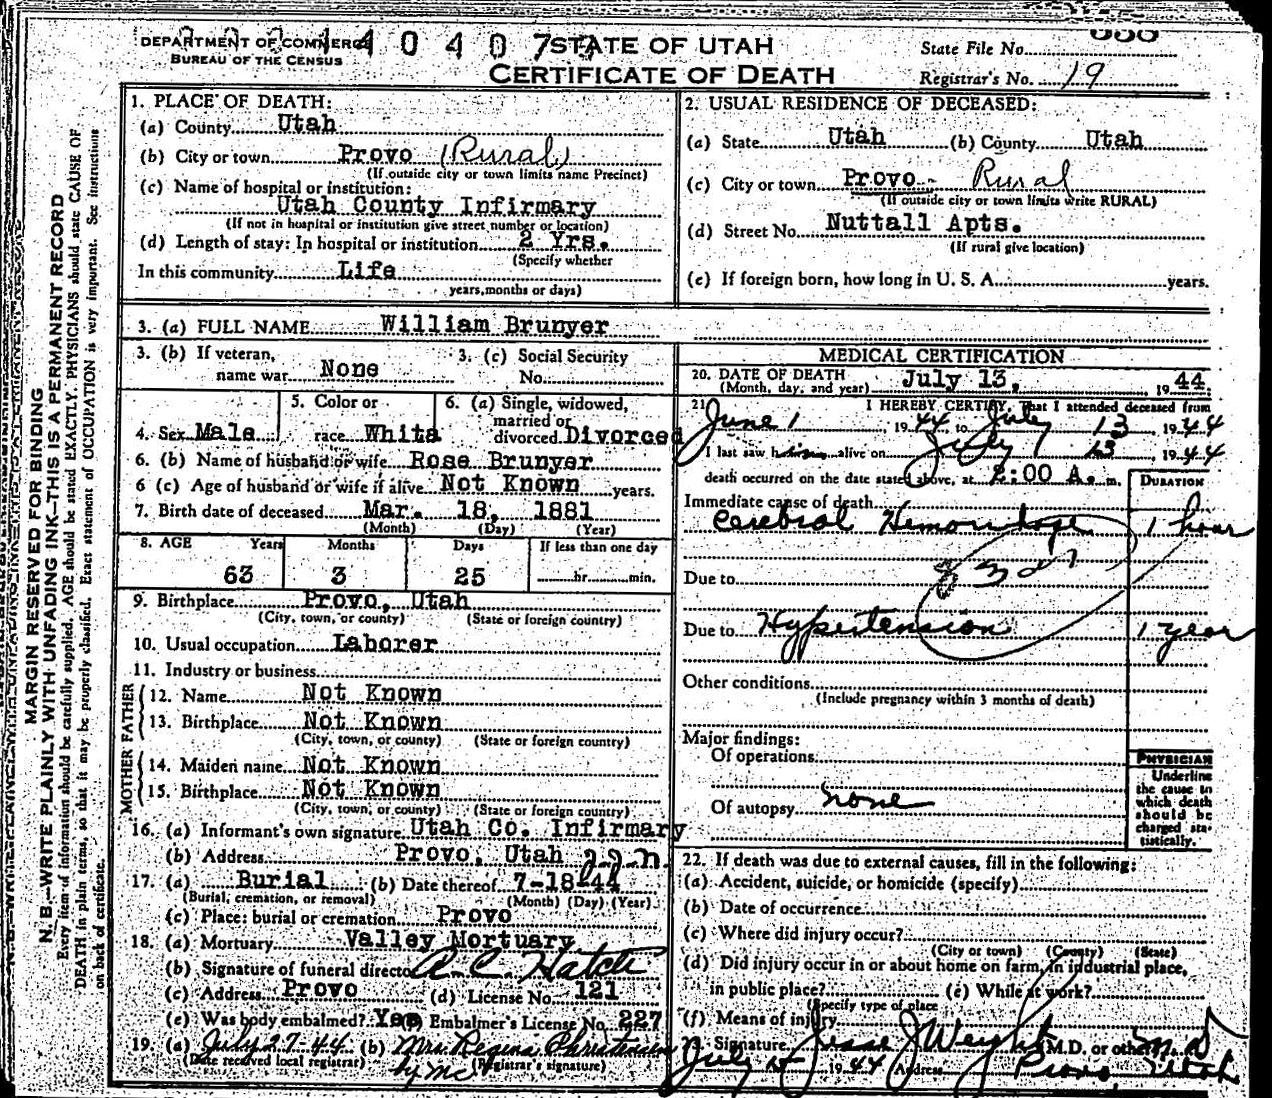 DEPARTMENT OF COMMERCE
BUREAU OF THE CENSUS
4 0 4 0 7
STATE OF UTAH
CERTIFICATE OF DEATH
State File No.
Registrar's No. 19
MARGIN RESERVED FOR BINDING
N. B.—WRITE PLAINLY WITH UNFADING INK—THIS IS A PERMANENT RECORD
Every item of information should be carefully supplied. AGE should be stated EXACTLY. PHYSICIANS should state CAUSE OF
DEATH in plain terms, so that it may be properly classified. Exact statement of OCCUPATION is very important. See instructions
on back of certificate.
1. PLACE OF DEATH:
(a) County Utah
(b) City or town Provo (Rural)
(If outside city or town limits name Precinct)
(c) Name of hospital or institution:
Utah County Infirmary
(If not in hospital or institution give street number or location)
(d) Length of stay: In hospital or institution 2 Yrs.
(Specify whether
In this community Life
years, months or days)
2. USUAL RESIDENCE OF DECEASED:
(a) State Utah (b) County Utah
(c) City or town Provo - Rural
(If outside city or town limits write RURAL)
(d) Street No. Nuttall Apts.
(If rural give location)
(e) If foreign born, how long in U. S. A. years.
3. (a) FULL NAME William Brunyer
3. (b) If veteran,
name war None
3. (c) Social Security
No.
4. Sex Male
5. Color or
race White
6. (a) Single, widowed,
married or
divorced Divorced
6. (b) Name of husband or wife Rose Brunyer
6 (c) Age of husband or wife if alive Not Known years.
7. Birth date of deceased Mar. 18, 1881
(Month) (Day) (Year)
8. AGE Years Months Days If less than one day
63 3 25 hr. min.
9. Birthplace Provo, Utah
(City, town, or county) (State or foreign country)
10. Usual occupation Laborer
11. Industry or business
FATHER
12. Name Not Known
13. Birthplace Not Known
(City, town, or county) (State or foreign country)
MOTHER
14. Maiden name Not Known
15. Birthplace Not Known
(City, town, or county) (State or foreign country)
16. (a) Informant's own signature Utah Co. Infirmary
(b) Address Provo, Utah
17. (a) Burial (b) Date thereof 7-18-44
(Burial, cremation, or removal) (Month) (Day) (Year)
(c) Place: burial or cremation Provo
18. (a) Mortuary Valley Mortuary
(b) Signature of funeral director A. C. Hatch
(c) Address Provo (d) License No. 121
(e) Was body embalmed? Yes Embalmer's License No. 227
19. (a) July 27-44 (b) Mrs Regina Christensen
(Date received local registrar) by Mc (Registrar's signature)
MEDICAL CERTIFICATION
20. DATE OF DEATH
(Month, day, and year) July 13, 1944.
21. I HEREBY CERTIFY, That I attended deceased from
June 1 1944 to July 13 1944
I last saw him alive on July 13 1944
death occurred on the date stated above, at 2:00 A. m.
DURATION
Immediate cause of death
Cerebral Hemorrhage 1 hour
Due to
Due to Hypertension 1 year
Other conditions
(Include pregnancy within 3 months of death)
Major findings:
Of operations
Of autopsy none
PHYSICIAN
Underline
the cause to
which death
should be
charged sta-
tistically.
22. If death was due to external causes, fill in the following:
(a) Accident, suicide, or homicide (specify)
(b) Date of occurrence
(c) Where did injury occur?
(City or town) (County) (State)
(d) Did injury occur in or about home on farm, in industrial place,
in public place? (e) While at work?
(Specify type of place
(f) Means of injury
23. Signature Jesse J Weight M.D. or other M D
July 15 1944 Address Provo, Utah